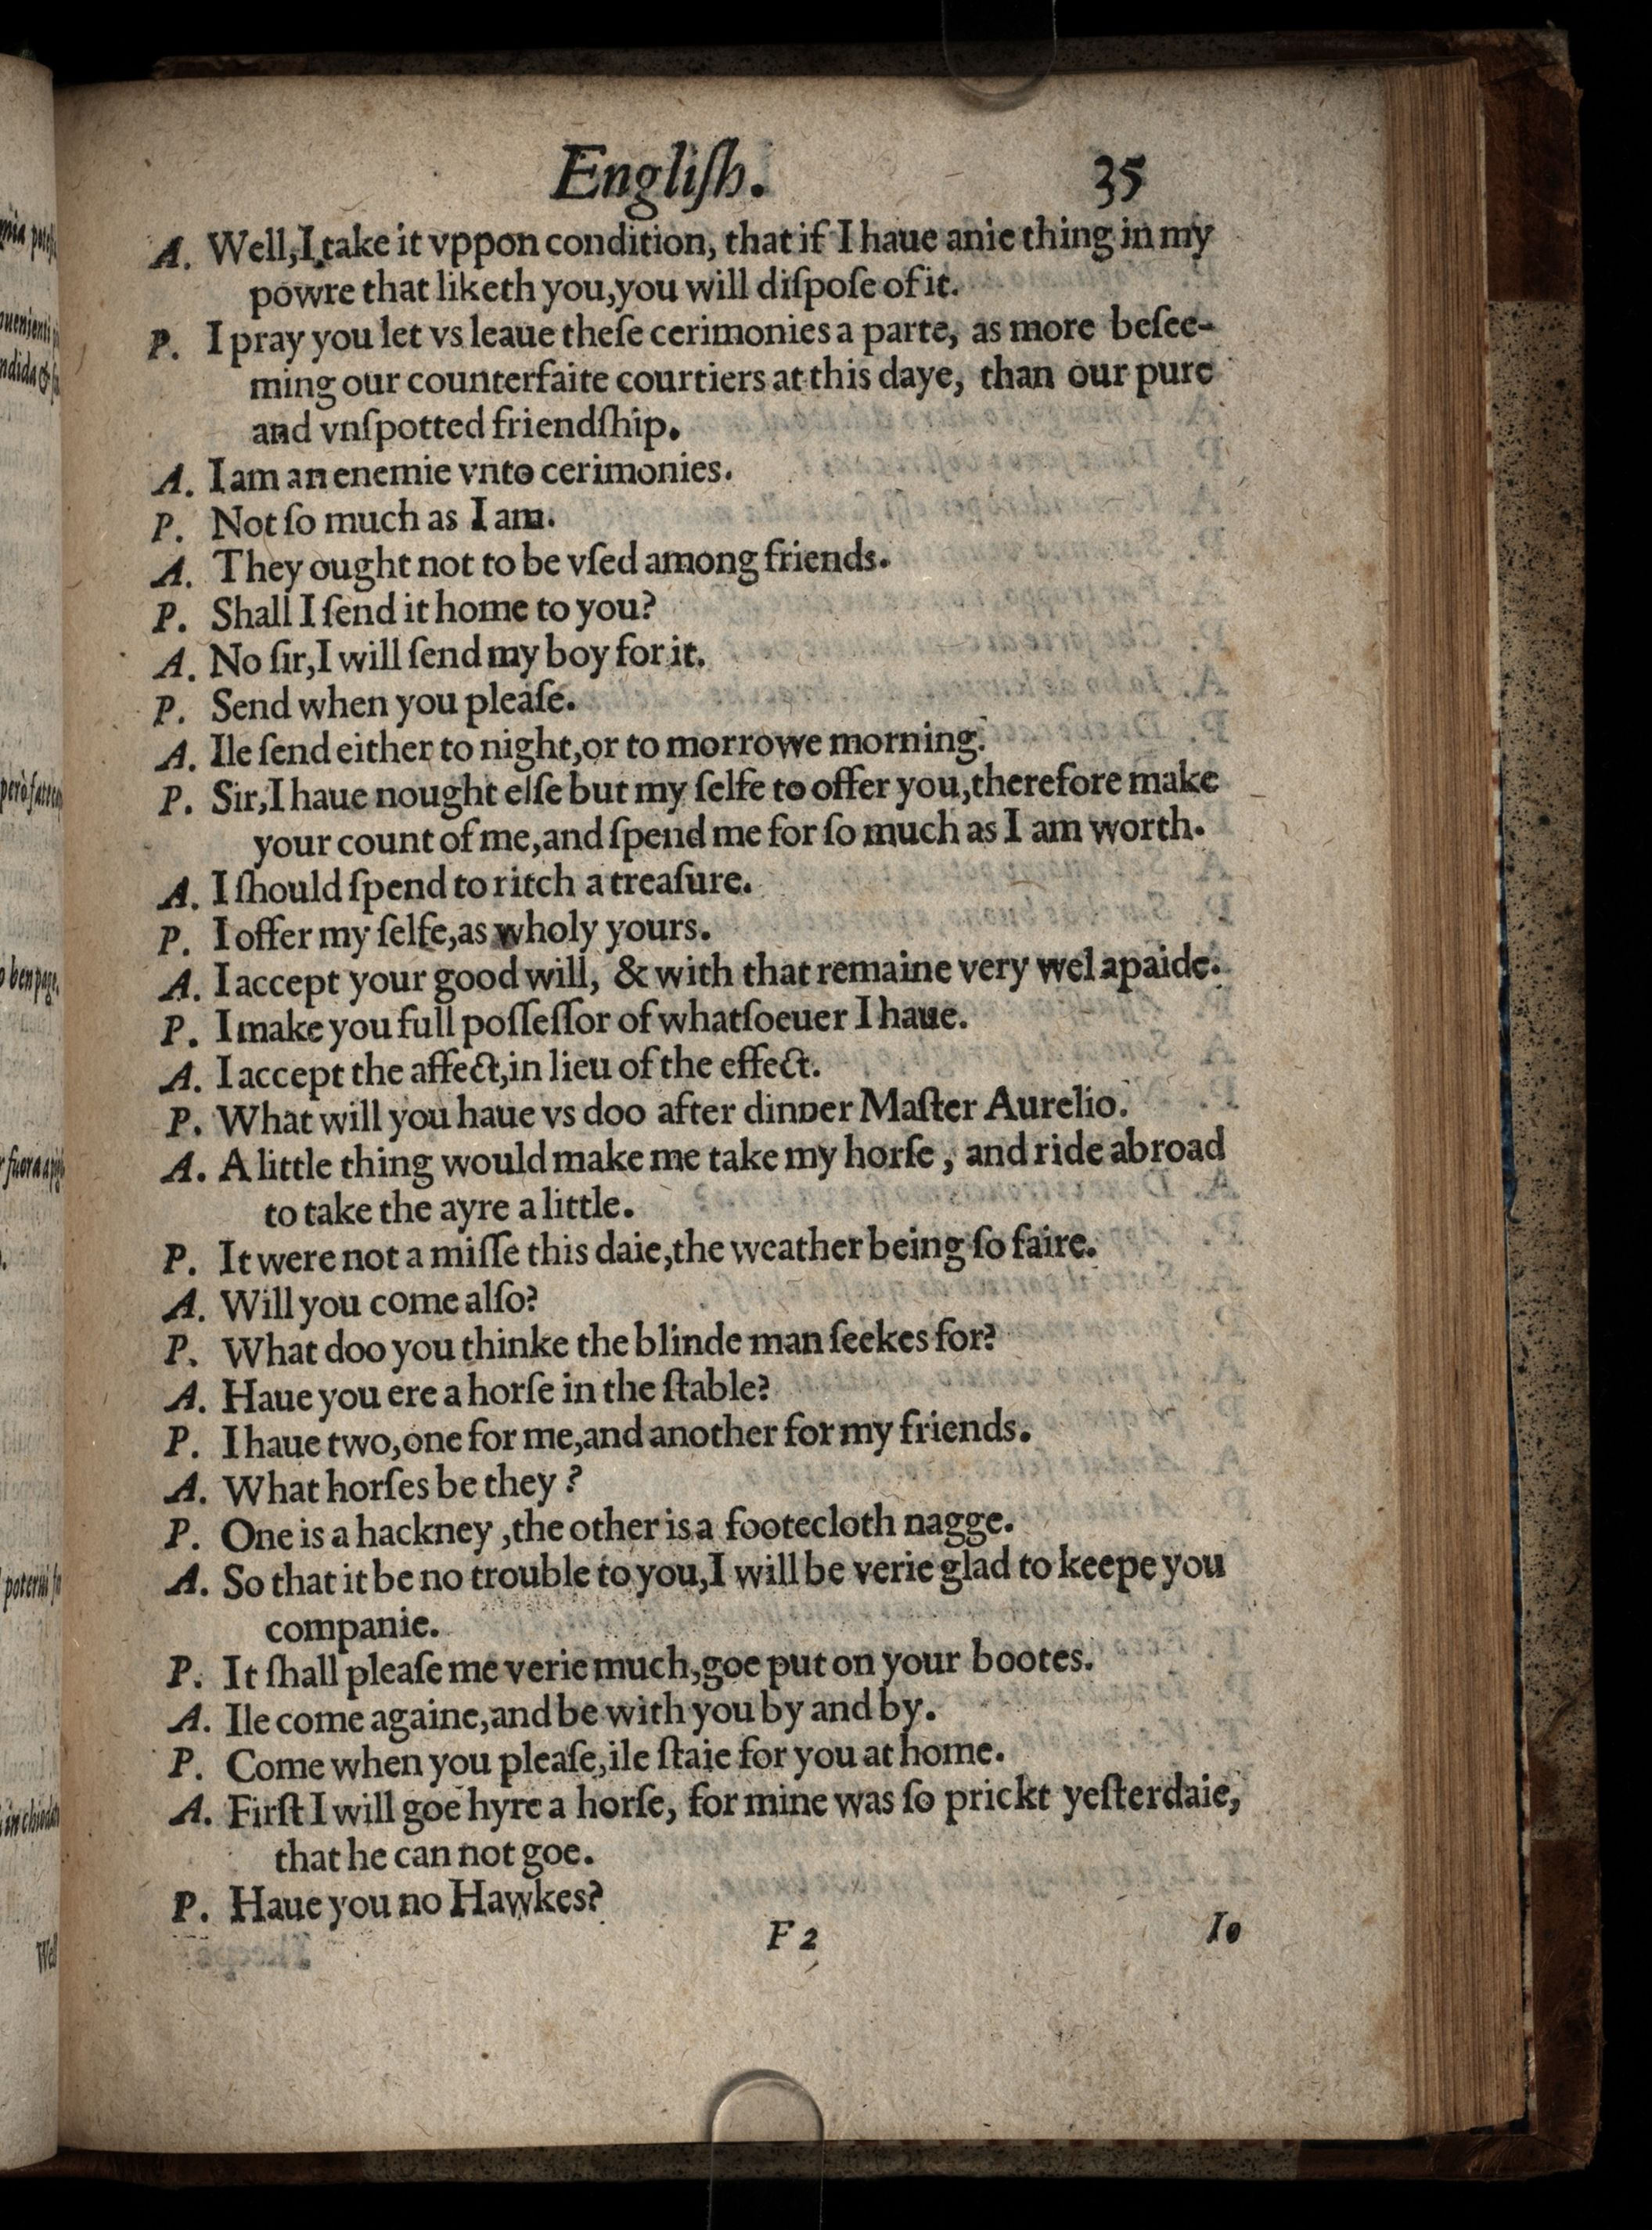 Engliſh. 35
A. Well,I take it vppon condition, that if I haue anie thing in my
powre that liketh you,you will diſpoſe of it.
P. I pray you let vs leaue theſe cerimonies a parte, as more beſee-
ming our counterfaite courtiers at this daye, than our pure
and vnſpotted friendſhip.
A. I am an enemie vnto cerimonies.
P. Not ſo much as I am.
A. They ought not to be vſed among friends.
P. Shall I ſend it home to you?
A. No ſir,I will ſend my boy for it.
P. Send when you pleaſe.
A. Ile ſend either to night,or to morrowe morning.
P. Sir,I haue nought elſe but my ſelfe to offer you,therefore make
your count of me,and ſpend me for ſo much as I am worth.
A. I ſhould ſpend to ritch a treaſure.
P. I offer my ſelfe,as wholy yours.
A. I accept your good will, & with that remaine very wel apaide.
P. I make you full poſſeſſor of whatſoeuer I haue.
A. I accept the affect,in lieu of the effect.
P. What will you haue vs doo after dinner Maſter Aurelio.
A. A little thing would make me take my horſe, and ride abroad
to take the ayre a little.
P. It were not a miſſe this daie,the weather being ſo faire.
A. Will you come alſo?
P. What doo you thinke the blinde man ſeekes for?
A. Haue you ere a horſe in the ſtable?
P. I haue two,one for me,and another for my friends.
A. What horſes be they?
P. One is a hackney,the other is a footecloth nagge.
A. So that it be no trouble to you,I will be verie glad to keepe you
companie.
P. It ſhall pleaſe me verie much,goe put on your bootes.
A. Ile come againe,and be with you by and by.
P. Come when you pleaſe,ile ſtaie for you at home.
A. Firſt I will goe hyre a horſe, for mine was ſo prickt yeſterdaie,
that he can not goe.
P. Haue you no Hawkes?
F 2 Io